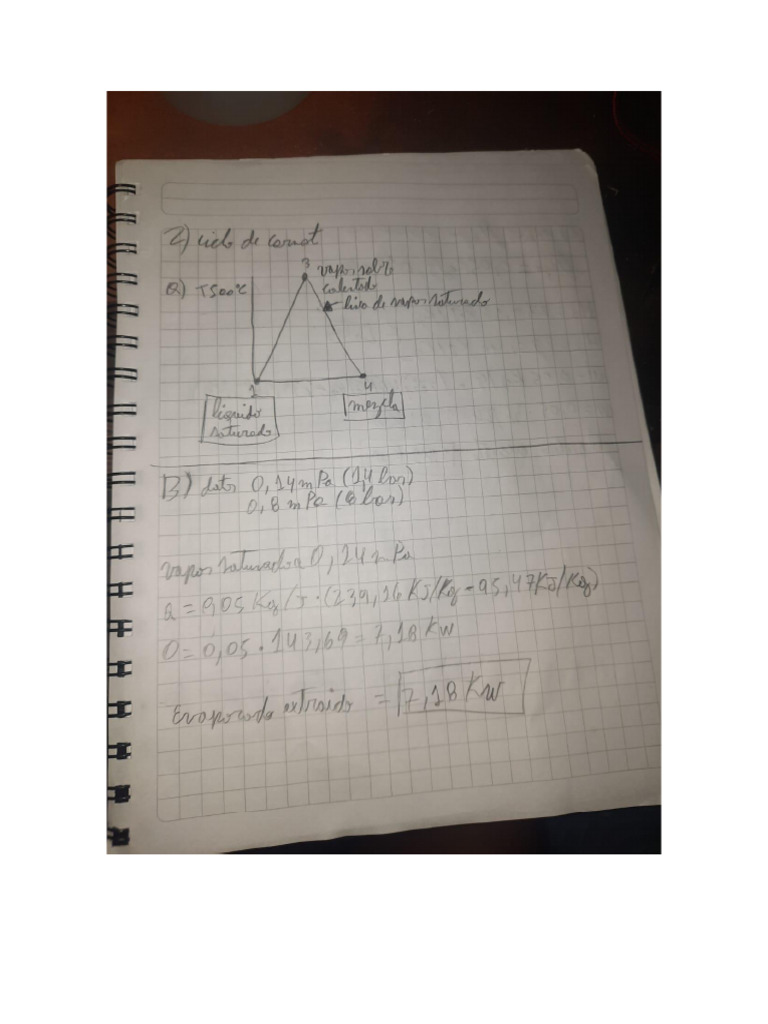 2) ciclo de carnot
3
vapor sobre
calentado
a) T500°C
liva de vapor saturado
1
4
liquido
saturado
mezcla
B) datos 0,14 mPa (1,4 bar)
0,8 mPa (8 bar)
vapor saturado a 0,14 mPa
Q = 0,05 Kg/s · (239,16 KJ/Kg - 95,47 KJ/Kg)
Q = 0,05 · 143,69 = 7,18 KW
Evaporado extraido = 7,18 KW